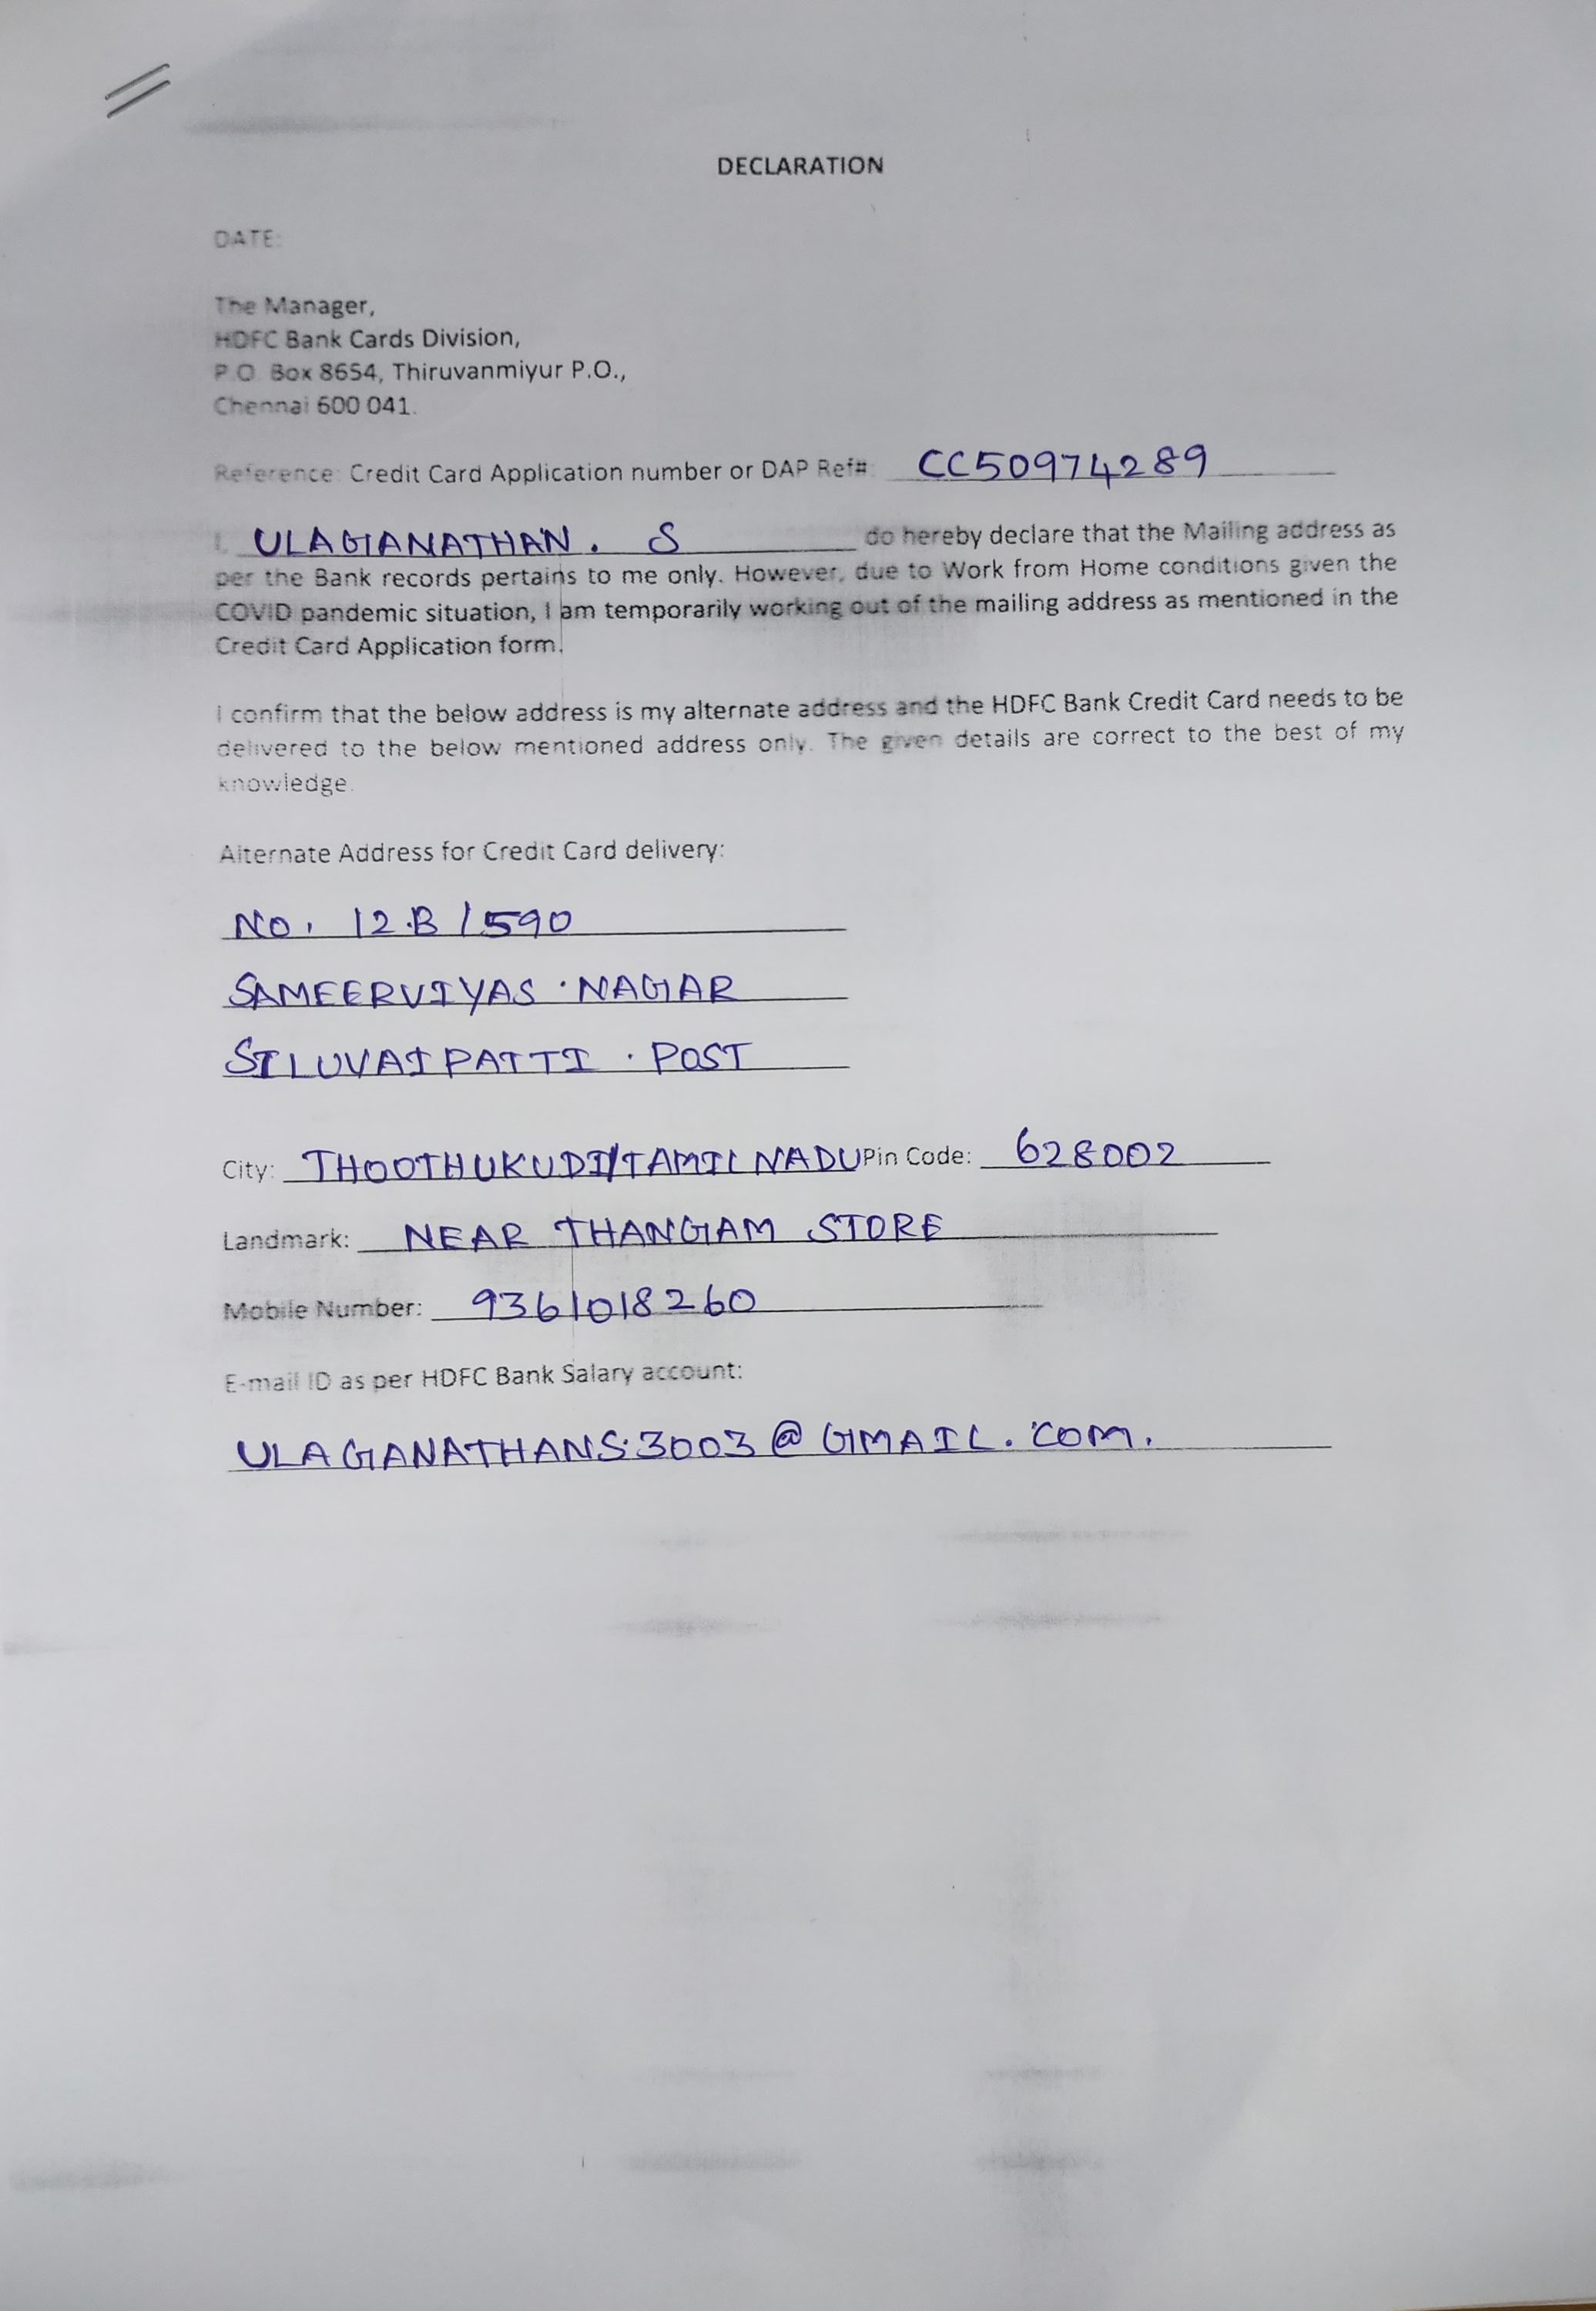 DECLARATION
DATE:
The Manager,
HDFC Bank Cards Division,
P.O. Box 8654, Thiruvanmiyur P.O.,
Chennai 600 041.
Reference: Credit Card Application number or DAP Ref#: CC50974289
I, ULAGANATHAN. S do hereby declare that the Mailing address as
per the Bank records pertains to me only. However, due to Work from Home conditions given the
COVID pandemic situation, I am temporarily working out of the mailing address as mentioned in the
Credit Card Application form.
I confirm that the below address is my alternate address and the HDFC Bank Credit Card needs to be
delivered to the below mentioned address only. The given details are correct to the best of my
knowledge.
Alternate Address for Credit Card delivery:
NO. 12.B/590
SAMEERVIYAS . NAGAR
SILUVAIPATTI . POST
City: THOOTHUKUDI/TAMIL NADU Pin Code: 628002
Landmark: NEAR THANGAM STORE
Mobile Number: 9361018260
E-mail ID as per HDFC Bank Salary account:
ULAGANATHANS.3003@GMAIL.COM.